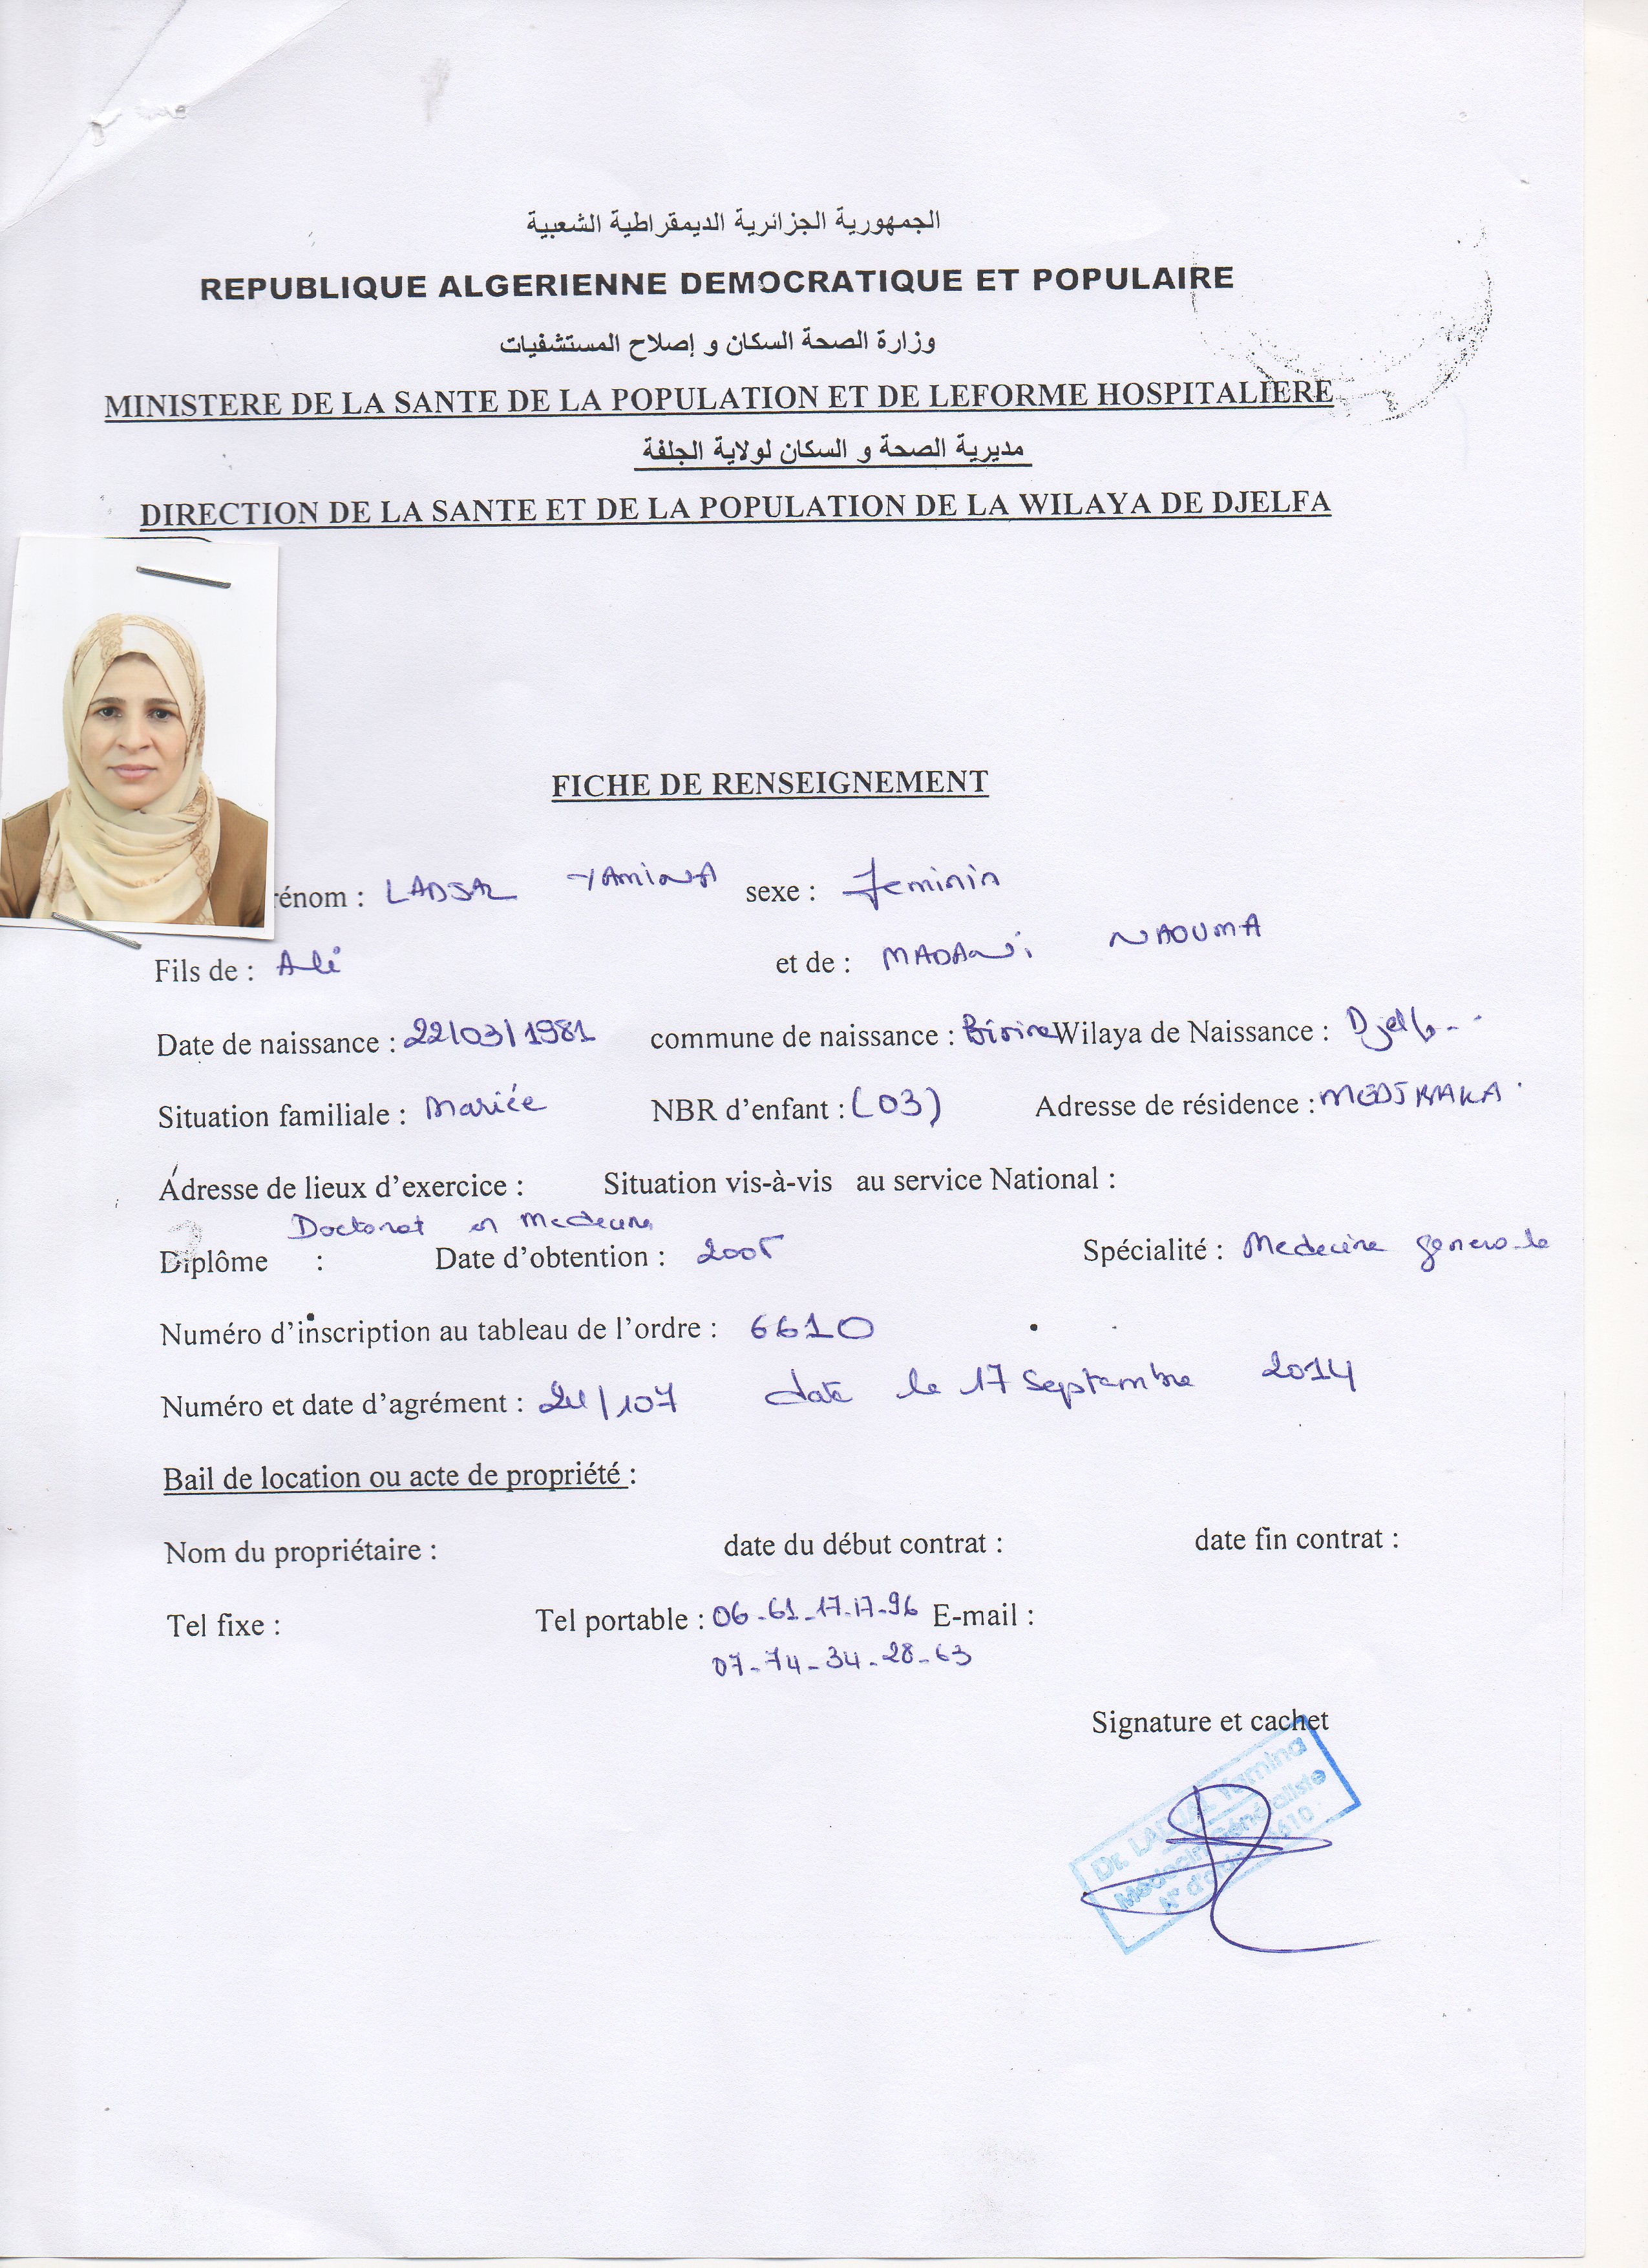 الجمهورية الجزائرية الديمقراطية الشعبية
REPUBLIQUE ALGERIENNE DEMOCRATIQUE ET POPULAIRE
وزارة الصحة السكان و إصلاح المستشفيات
MINISTERE DE LA SANTE DE LA POPULATION ET DE LEFORME HOSPITALIERE
مديرية الصحة و السكان لولاية الجلفة
DIRECTION DE LA SANTE ET DE LA POPULATION DE LA WILAYA DE DJELFA
FICHE DE RENSEIGNEMENT
rénom : LADJAL YAMINA sexe : feminin
Fils de : Ali et de : MADANI NAOUMA
Date de naissance : 22/03/1981 commune de naissance : Birine Wilaya de Naissance : Djelfa
Situation familiale : Mariée NBR d'enfant : (03) Adresse de résidence :
Adresse de lieux d'exercice : Situation vis-à-vis au service National :
Doctorat en Medecine
Diplôme : Date d'obtention : 2005 Spécialité : Medecine generale
Numéro d'inscription au tableau de l'ordre : 6610
Numéro et date d'agrément : 24/107 date le 17 Septembre 2014
Bail de location ou acte de propriété :
Nom du propriétaire : date du début contrat : date fin contrat :
Tel fixe : Tel portable : 06-61-17-17-96 E-mail :
07-74-34-28-63
Signature et cachet
Dr. LADJAL Yamina
Médecin Généraliste
N° d'ordre 6610